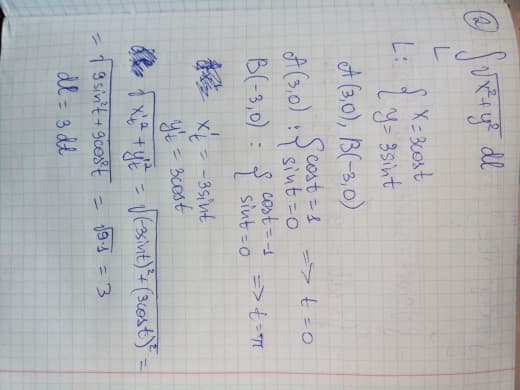 ② ∫_L √(x²+y²) dl
L: { x=3cost
y=3sint
A(3,0), B(-3,0)
A(3,0) : { cost=1
sint=0 => t=0
B(-3,0) : { cost=-1
sint=0 => t=π
x'_t = -3sint
y'_t = 3cost
√(x'_t² + y'_t²) = √((-3sint)²+(3cost)²) =
= √(9sin²t+9cos²t) = √(9·1) = 3
dl = 3dt